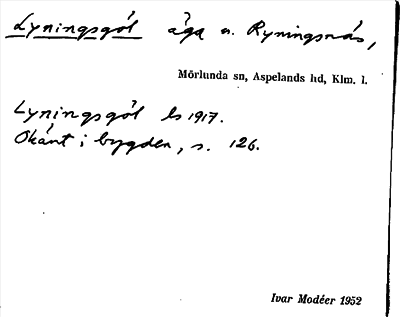 Lyningsgöl äga n. Ryningsnäs,
Mörlunda sn, Aspelands hd, Klm. l.
Lyningsgöl ls 1917.
Okänt i bygden, s. 126.
Ivar Modéer 1952